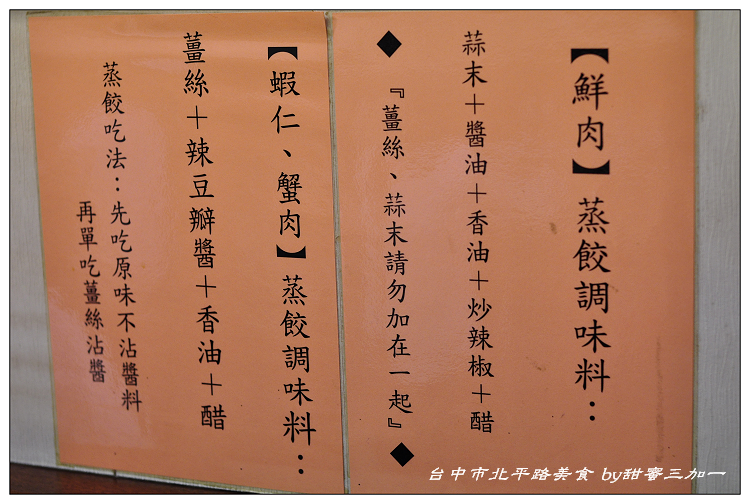 【鮮肉】蒸餃調味料：
蒜末＋醬油＋香油＋炒辣椒＋醋
◆『薑絲、蒜末請勿加在一起』◆
【蝦仁、蟹肉】蒸餃調味料：
薑絲＋辣豆瓣醬＋香油＋醋
蒸餃吃法：先吃原味不沾醬料
再單吃薑絲沾醬
台中市北平路美食 by甜蜜三加一